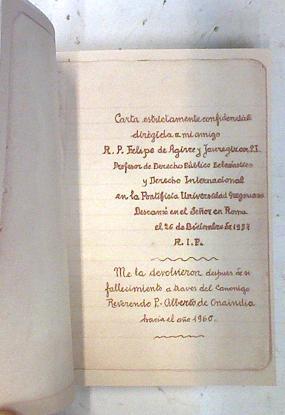 Carta estrictamente confidencial
dirigida a mi amigo
R. P. Felipe de Agirre y Jauregizar, P.I.
Profesor de Derecho Público Eclesiástico
y Derecho Internacional
en la Pontificia Universidad Gregoriana
Descansó en el Señor en Roma
el 26 de Diciembre de
R. I. P.
Me la devolvieron después de su
fallecimiento a través del Canonigo
Reverendo P. Alberto de Onaindia
hacia el año 1960.